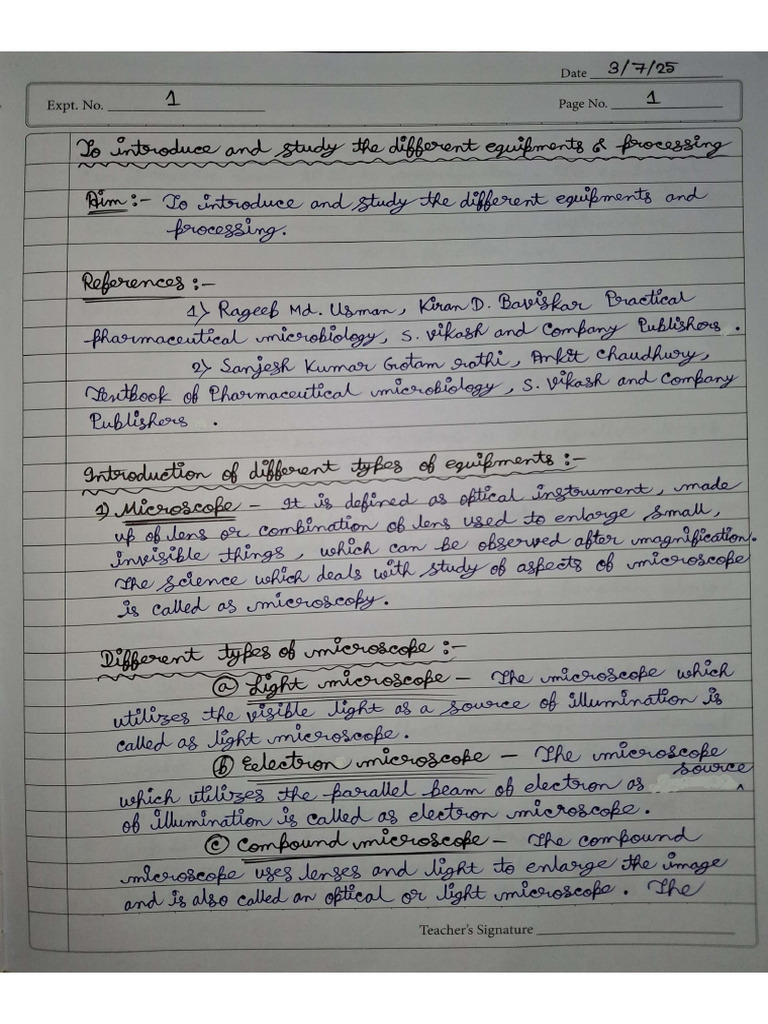 Date 3/7/25
Expt. No. 1
Page No. 1
To introduce and study the different equipments & processing
Aim :- To introduce and study the different equipments and
processing.
References :-
1) Rageeb Md. Usman, Kiran D. Baviskar Practical
pharmaceutical microbiology, S. Vikash and Company Publishers.
2) Sanjesh Kumar Gotam rathi, Ankit Chaudhury,
Textbook of Pharmaceutical microbiology, S. Vikash and Company
Publishers.
Introduction of different types of equipments :-
1) Microscope - It is defined as optical instrument, made
up of lens or combination of lens used to enlarge small,
invisible things, which can be observed after magnification.
The science which deals with study of aspects of microscope
is called as microscopy.
Different types of microscope :-
(a) Light microscope - The microscope which
utilizes the visible light as a source of illumination is
called as light microscope.
(b) Eelectron microscope - The microscope
which utilizes the parallel beam of electron as source
of illumination is called as electron microscope.
(c) Compound microscope - The compound
microscope uses lenses and light to enlarge the image
and is also called an optical or light microscope. The
Teacher's Signature